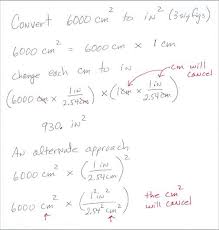 Convert 6000 cm² to in² (3 sig figs)
6000 cm² = 6000 cm × 1 cm
change each cm to in
cm will cancel
(6000 cm × 1 in / 2.54 cm) × (1 cm × 1 in / 2.54 cm)
930. in²
An alternate approach
6000 cm² × (1 in / 2.54 cm)²
6000 cm² × (1² in² / 2.54² cm²)
the cm² will cancel